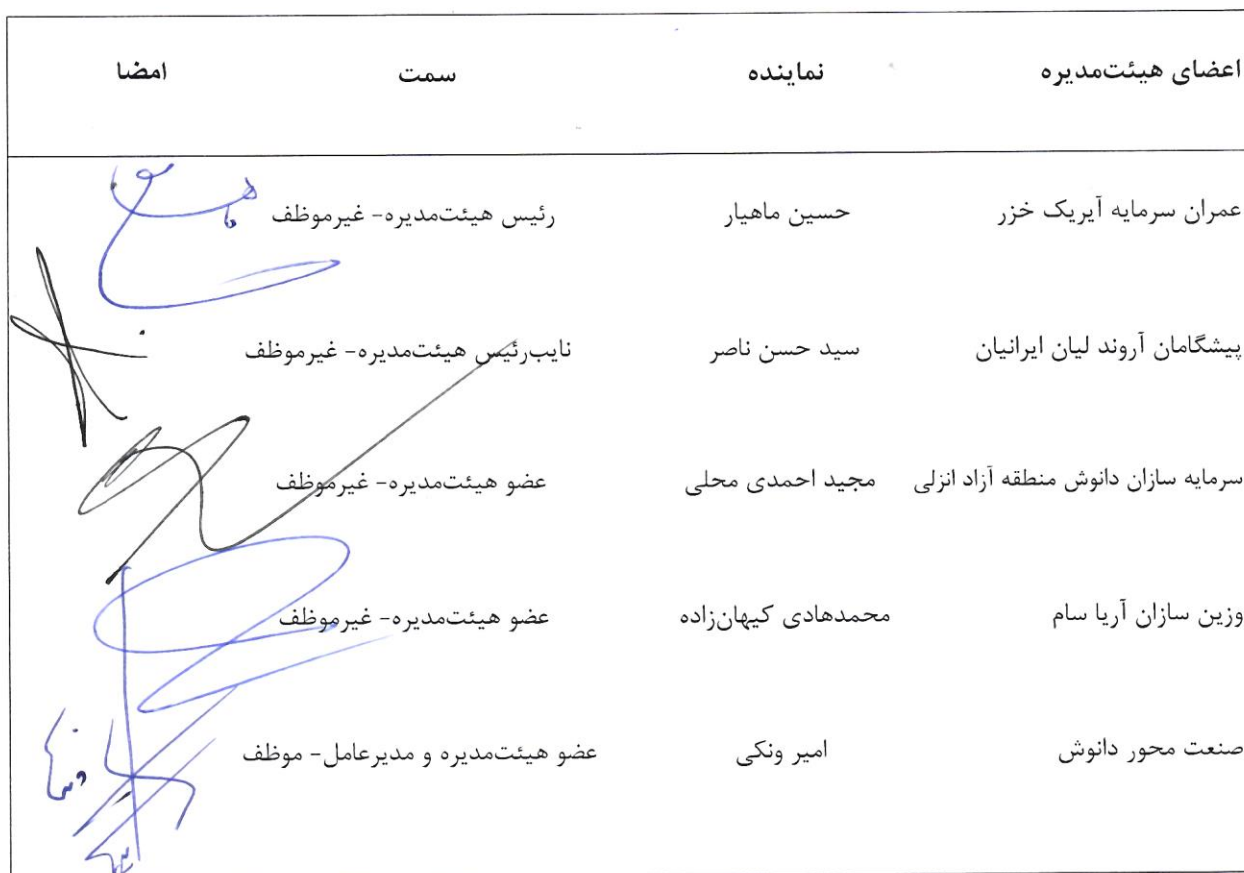 اعضای هیئت‌مدیره نماینده سمت امضا
عمران سرمایه آیریک خزر حسین ماهیار رئیس هیئت‌مدیره- غیرموظف
پیشگامان آروند لیان ایرانیان سید حسن ناصر نایب‌رئیس هیئت‌مدیره- غیرموظف
سرمایه سازان دانوش منطقه آزاد انزلی مجید احمدی محلی عضو هیئت‌مدیره- غیرموظف
وزین سازان آریا سام محمدهادی کیهان‌زاده عضو هیئت‌مدیره- غیرموظف
صنعت محور دانوش امیر ونکی عضو هیئت‌مدیره و مدیرعامل- موظف